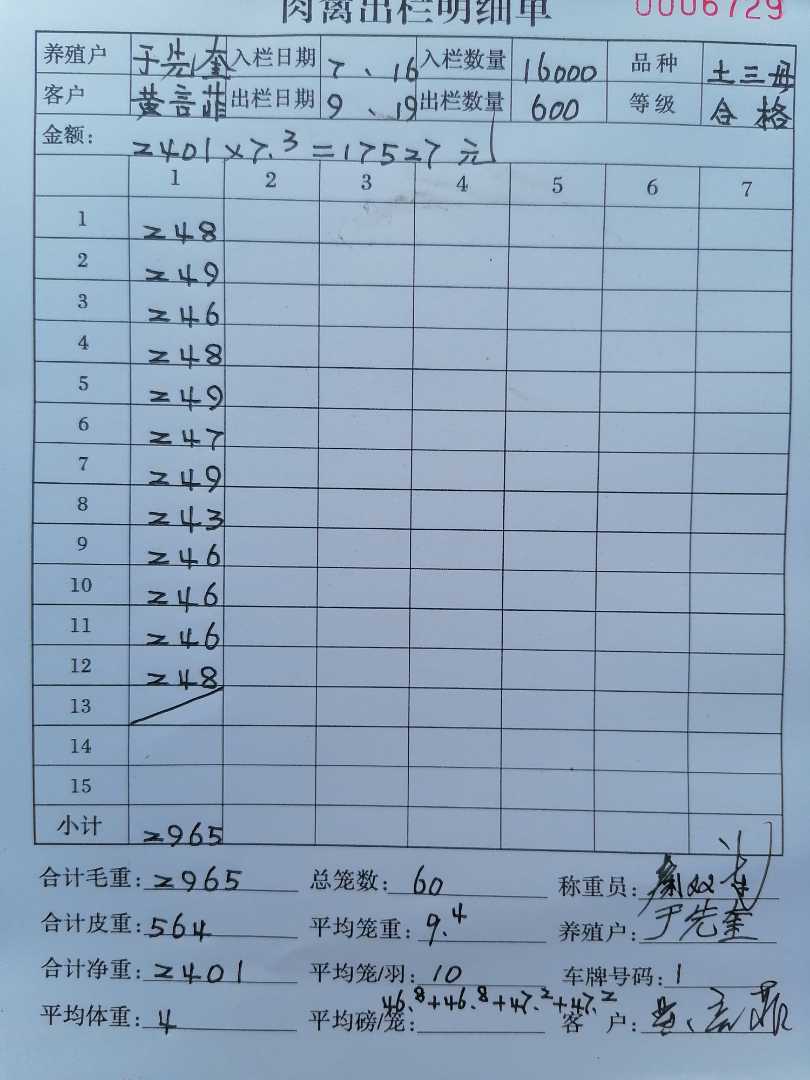 肉禽出栏明细单 0006729
养殖户 于先奎 入栏日期 7、16 入栏数量 16000 品种 土三母
客户 黄言菲 出栏日期 9、19 出栏数量 600 等级 合格
金额: 2401×7.3=17527元
1 2 3 4 5 6 7
1 248
2 249
3 246
4 248
5 249
6 247
7 249
8 243
9 246
10 246
11 246
12 248
13
14
15
小计 2965
合计毛重: 2965 总笼数: 60 称重员:
合计皮重: 564 平均笼重: 9.4 养殖户: 于先奎
合计净重: 2401 平均笼/羽: 10 车牌号码: 1
46.8+46.8+47.2+47.2
平均体重: 4 平均磅/笼: 客户: 黄言菲